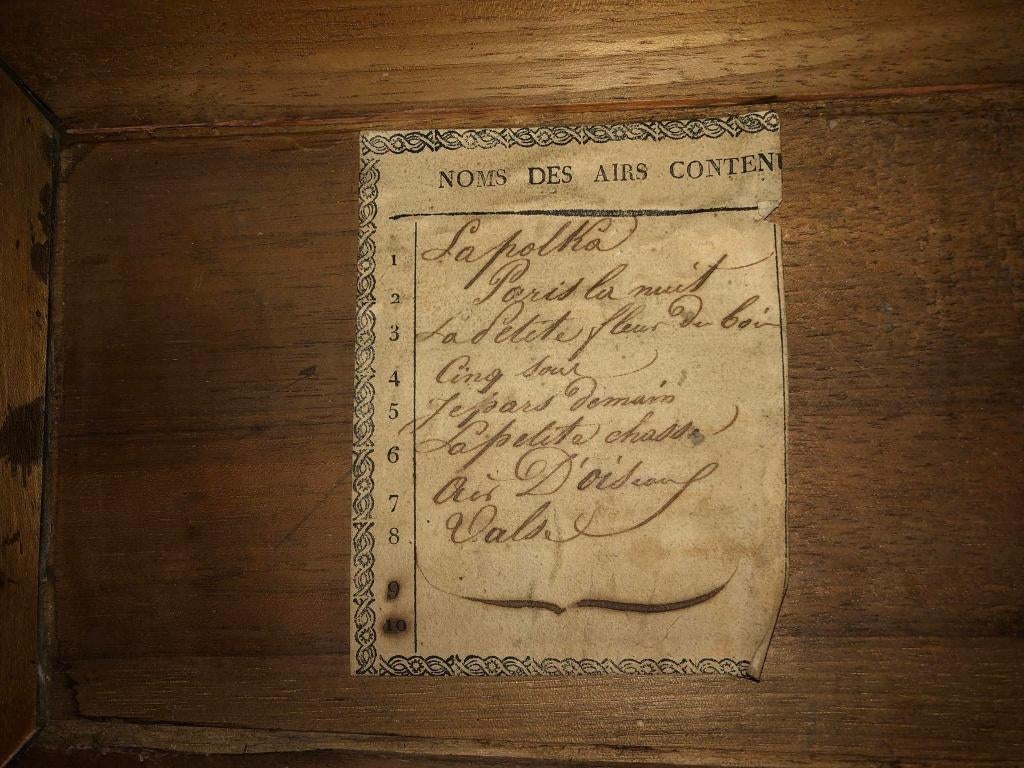 NOMS DES AIRS CONTEN
1 La polka
2 Paris la nuit
3 La petite fleur du bois
4 Cinq sous
5 Je pars demain
6 La petite chasse
7 Air D'oiseau
8 Valse
9
10